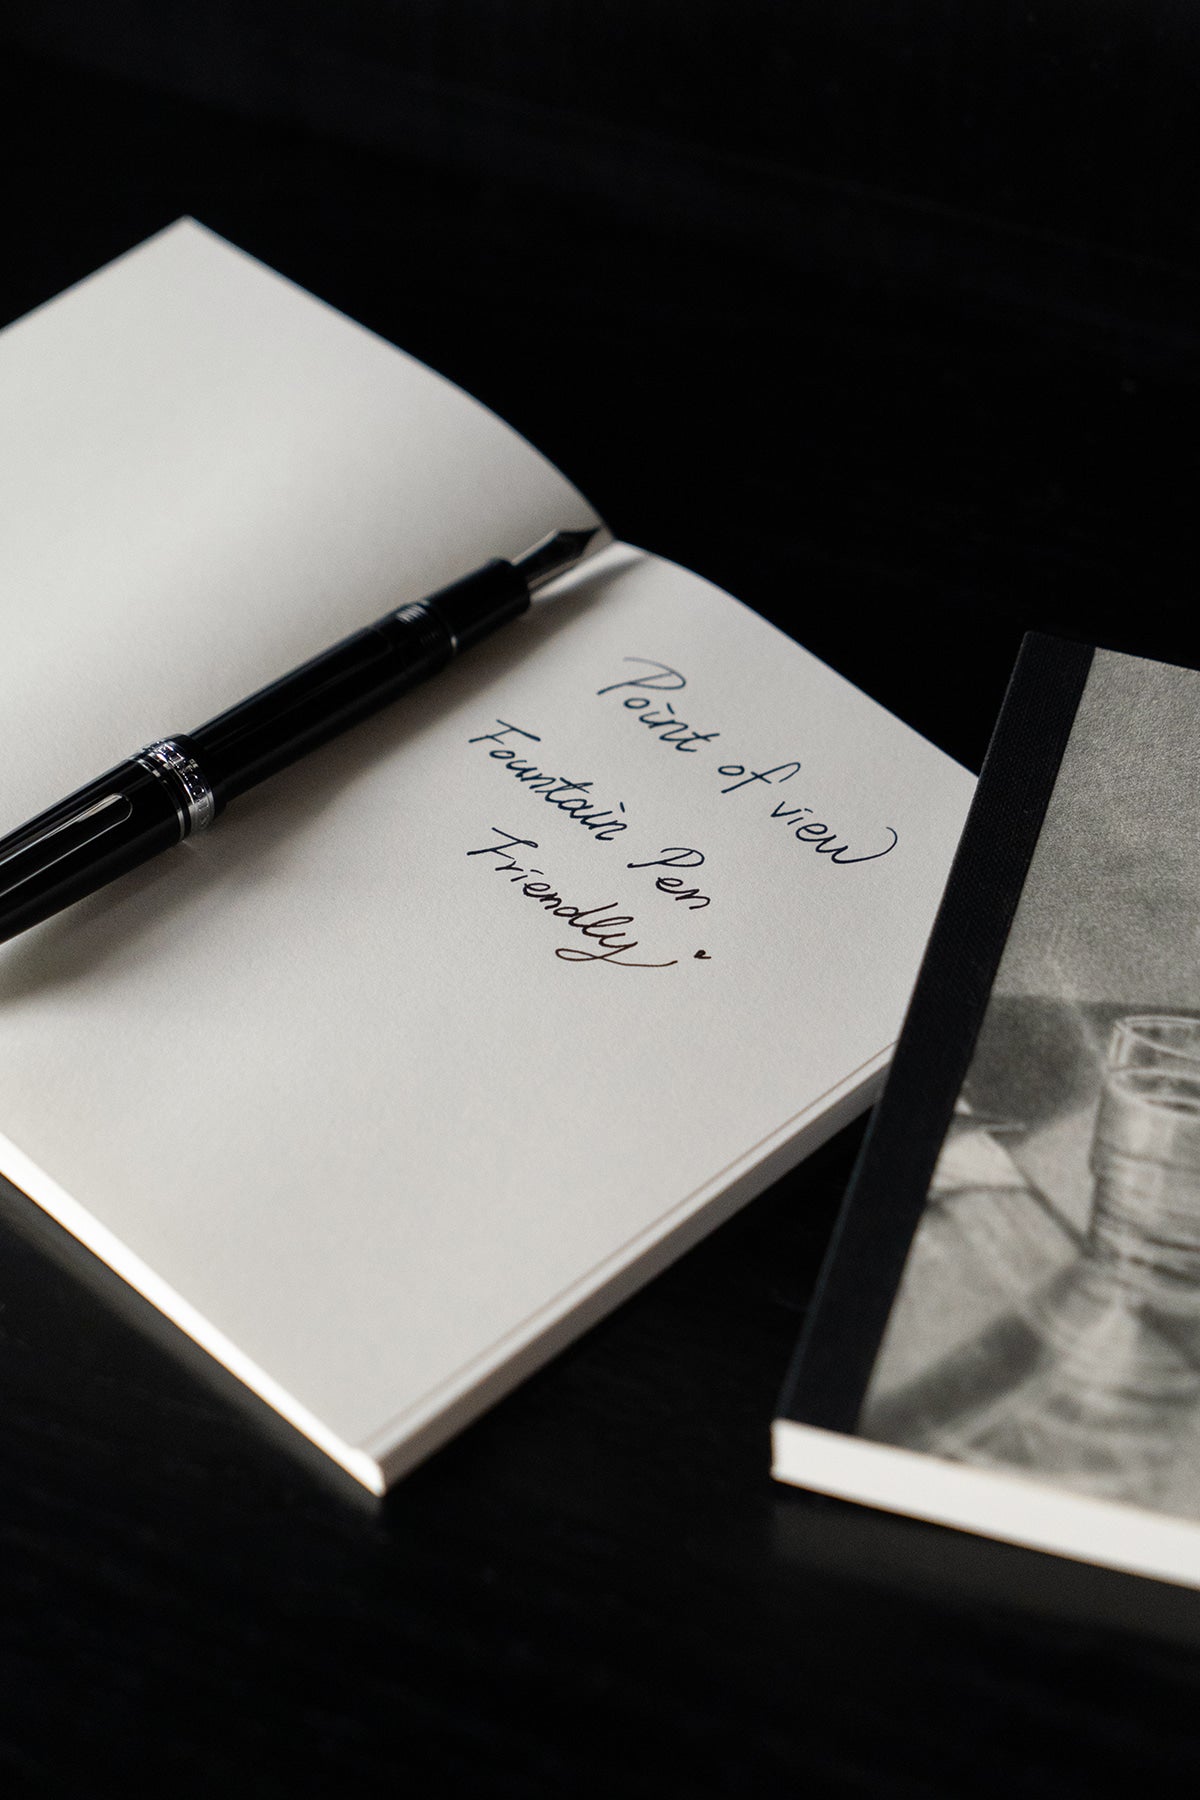 Point of view
Fountain Pen
Friendly.